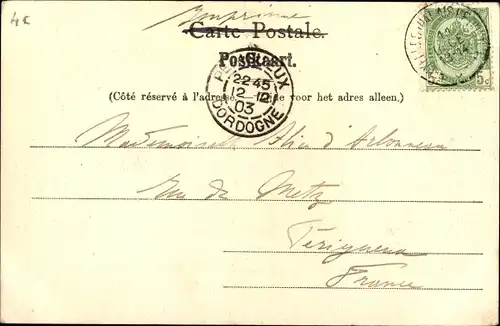 4€
Imprimé
Carte Postale.
Postkaart.
(Côté réservé à l'adresse. voor het adres alleen.)
PÉRIGUEUX
22 45
12 -12
03
DORDOGNE
5c
Mademoiselle d'Arbonneau
Rue de Metz
Périgueux
France